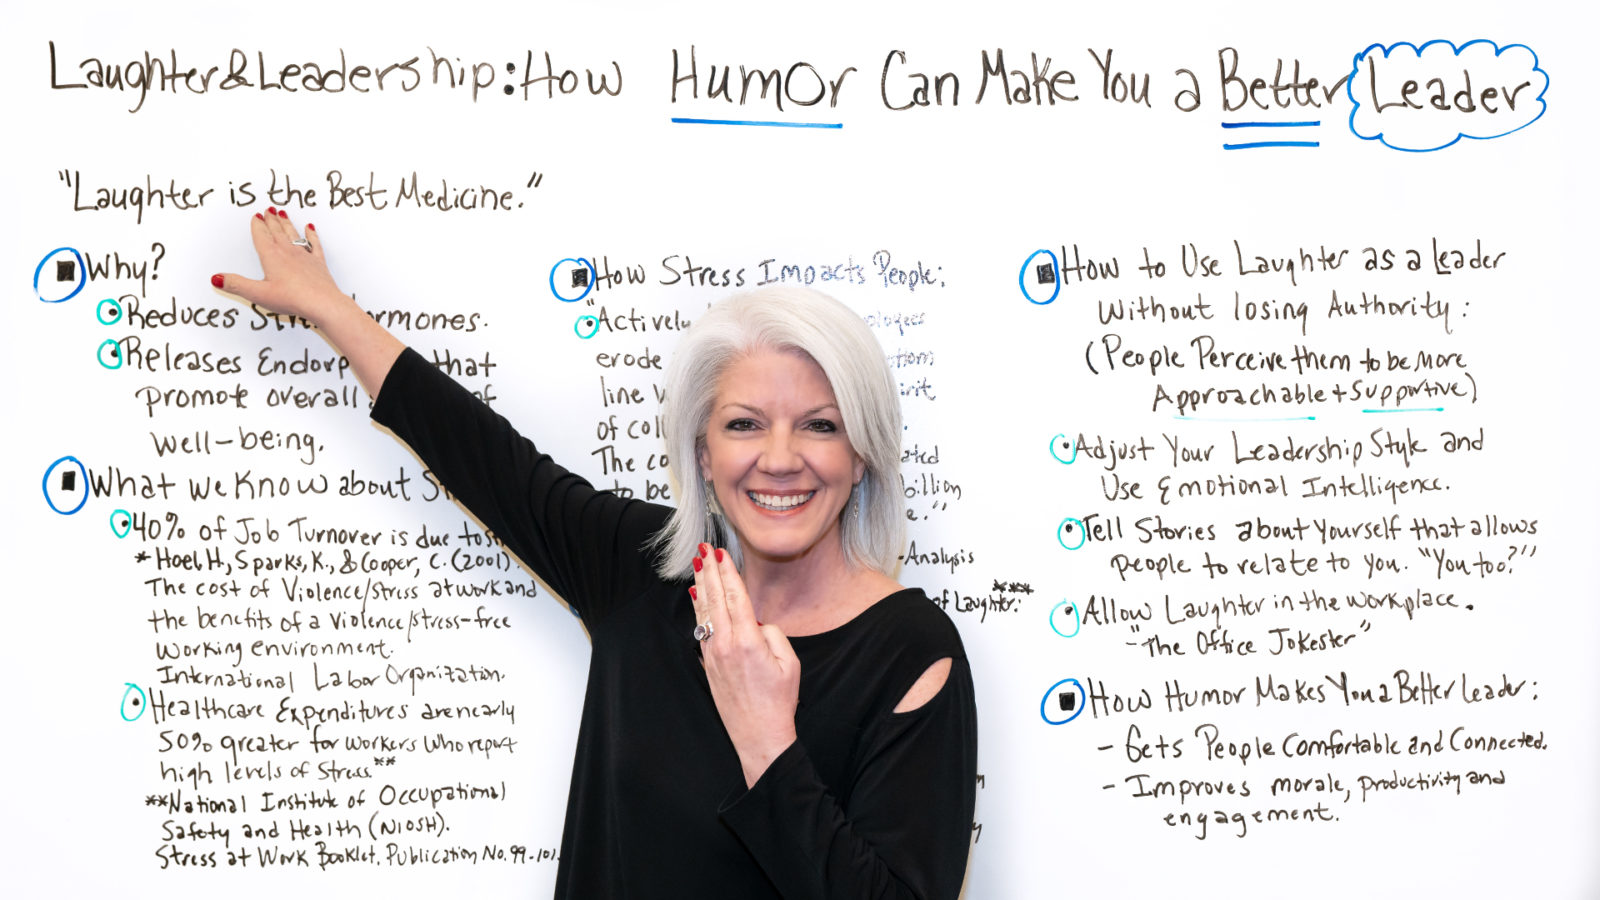 Laughter & Leadership: How Humor Can Make You a Better Leader
"Laughter is the Best Medicine."
Why?
Reduces Hormones.
Releases that
promote overall of
well-being.
What we Know about
40% of Job Turnover is due to
* Hoel H., Sparks, K., & Cooper, C. (2001).
The cost of Violence/stress at work and
the benefits of a violence/stress-free
working environment.
International Labor Organization.
Healthcare Expenditures are nearly
50% greater for workers who report
high levels of stress.**
**National Institute of Occupational
Safety and Health (NIOSH).
Stress at Work Booklet. Publication No. 99-101.
How Stress Impacts People:
"Actively
erode
line
of
The
to be billion
-Analysis
of Laughter:***
How to Use Laughter as a Leader
without losing Authority:
(People Perceive them to be More
Approachable + Supportive)
Adjust Your Leadership Style and
Use Emotional Intelligence.
Tell Stories about Yourself that allows
people to relate to you. "You too?!"
Allow Laughter in the workplace.
- "The Office Jokester"
How Humor Makes You a Better Leader:
- Gets People Comfortable and Connected.
- Improves morale, productivity and
engagement.